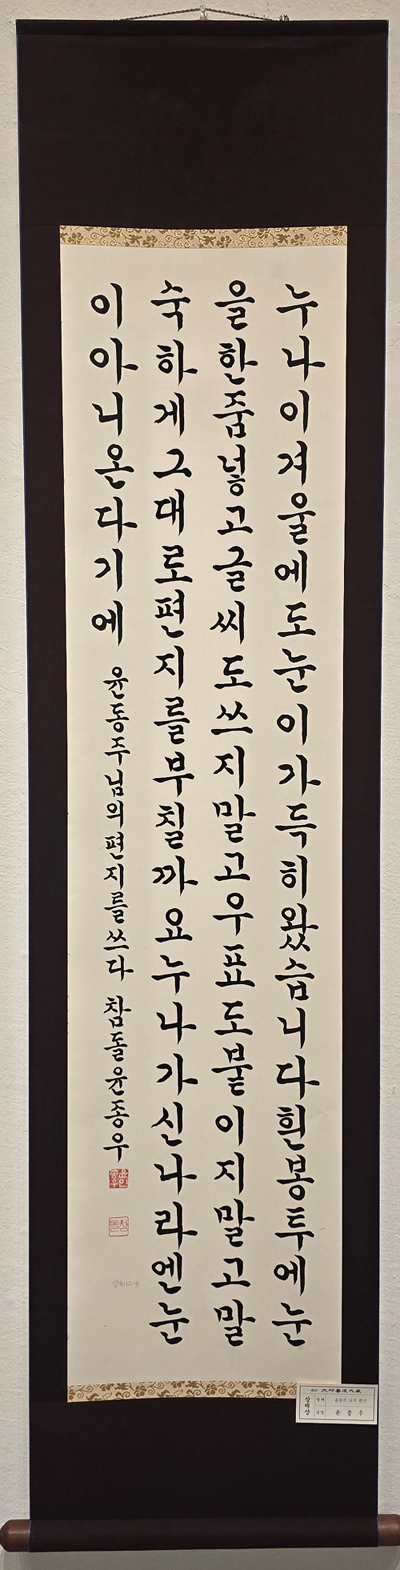 누나이겨울에도눈이가득히왔습니다흰봉투에눈
을한줌넣고글씨도쓰지말고우표도붙이지말고말
숙하게그대로편지를부칠까요누나가신나라엔눈
이아니온다기에
윤동주님의편지를쓰다 참돌윤종우
윤종우